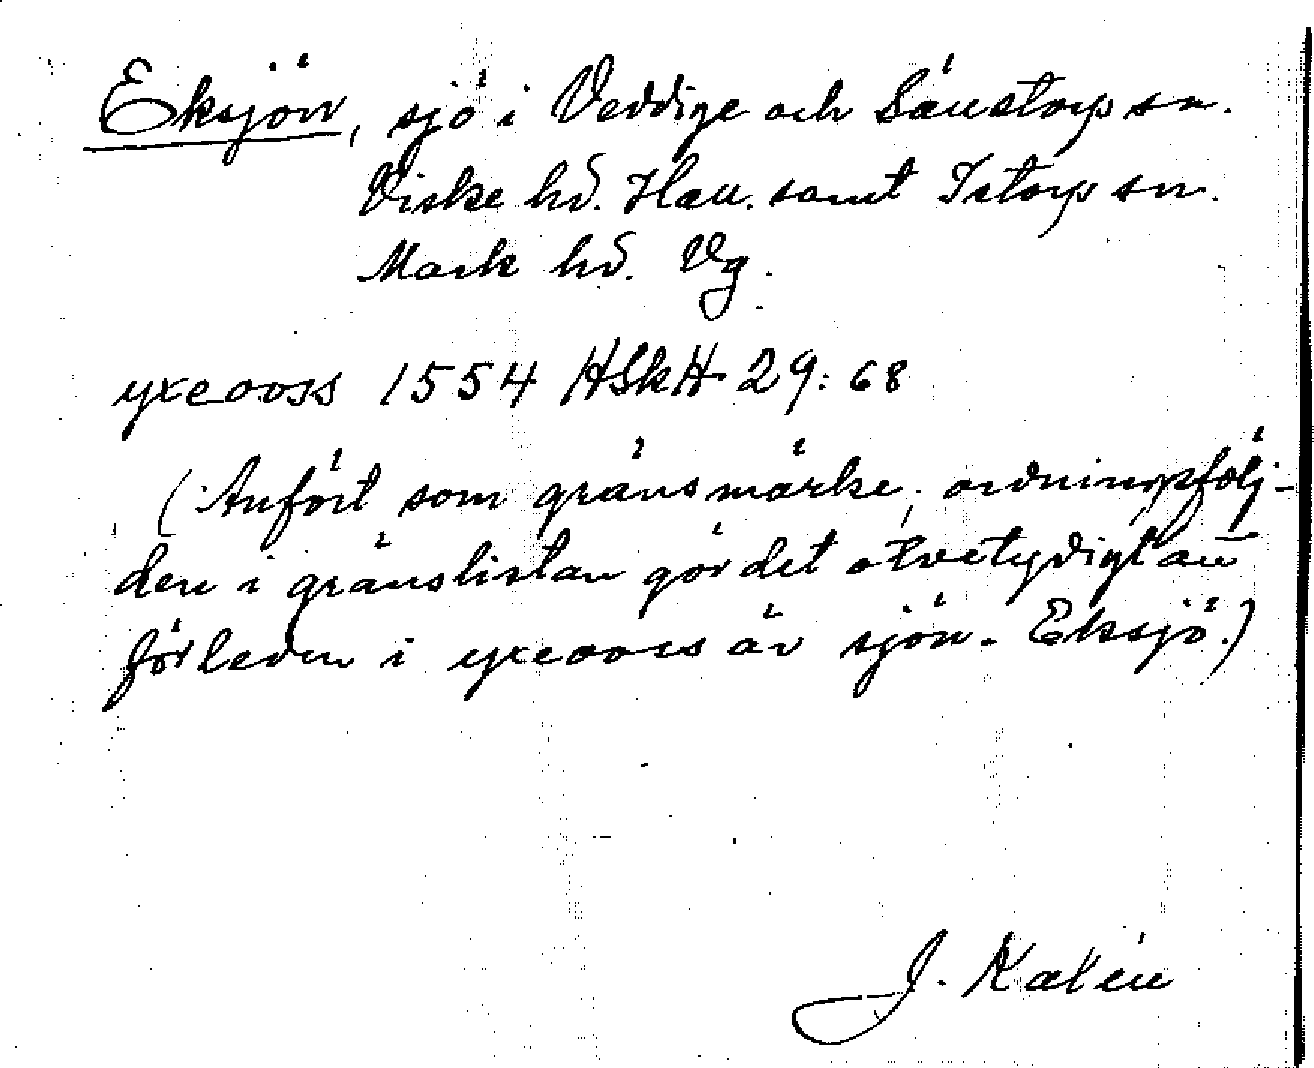 Eksjön, sjö i Veddige och Sällstorps sn.
Viske hd. Hall. samt Istorps sn.
Mark hd. Vg.
yxeooss 1554 HSkH 29:68
(Anfört som gränsmärke, ordningsfölj-
den i gränslistan gör det otvetydigt att
förleden i yxeooss är sjön - Eksjö.)
J. Kalén